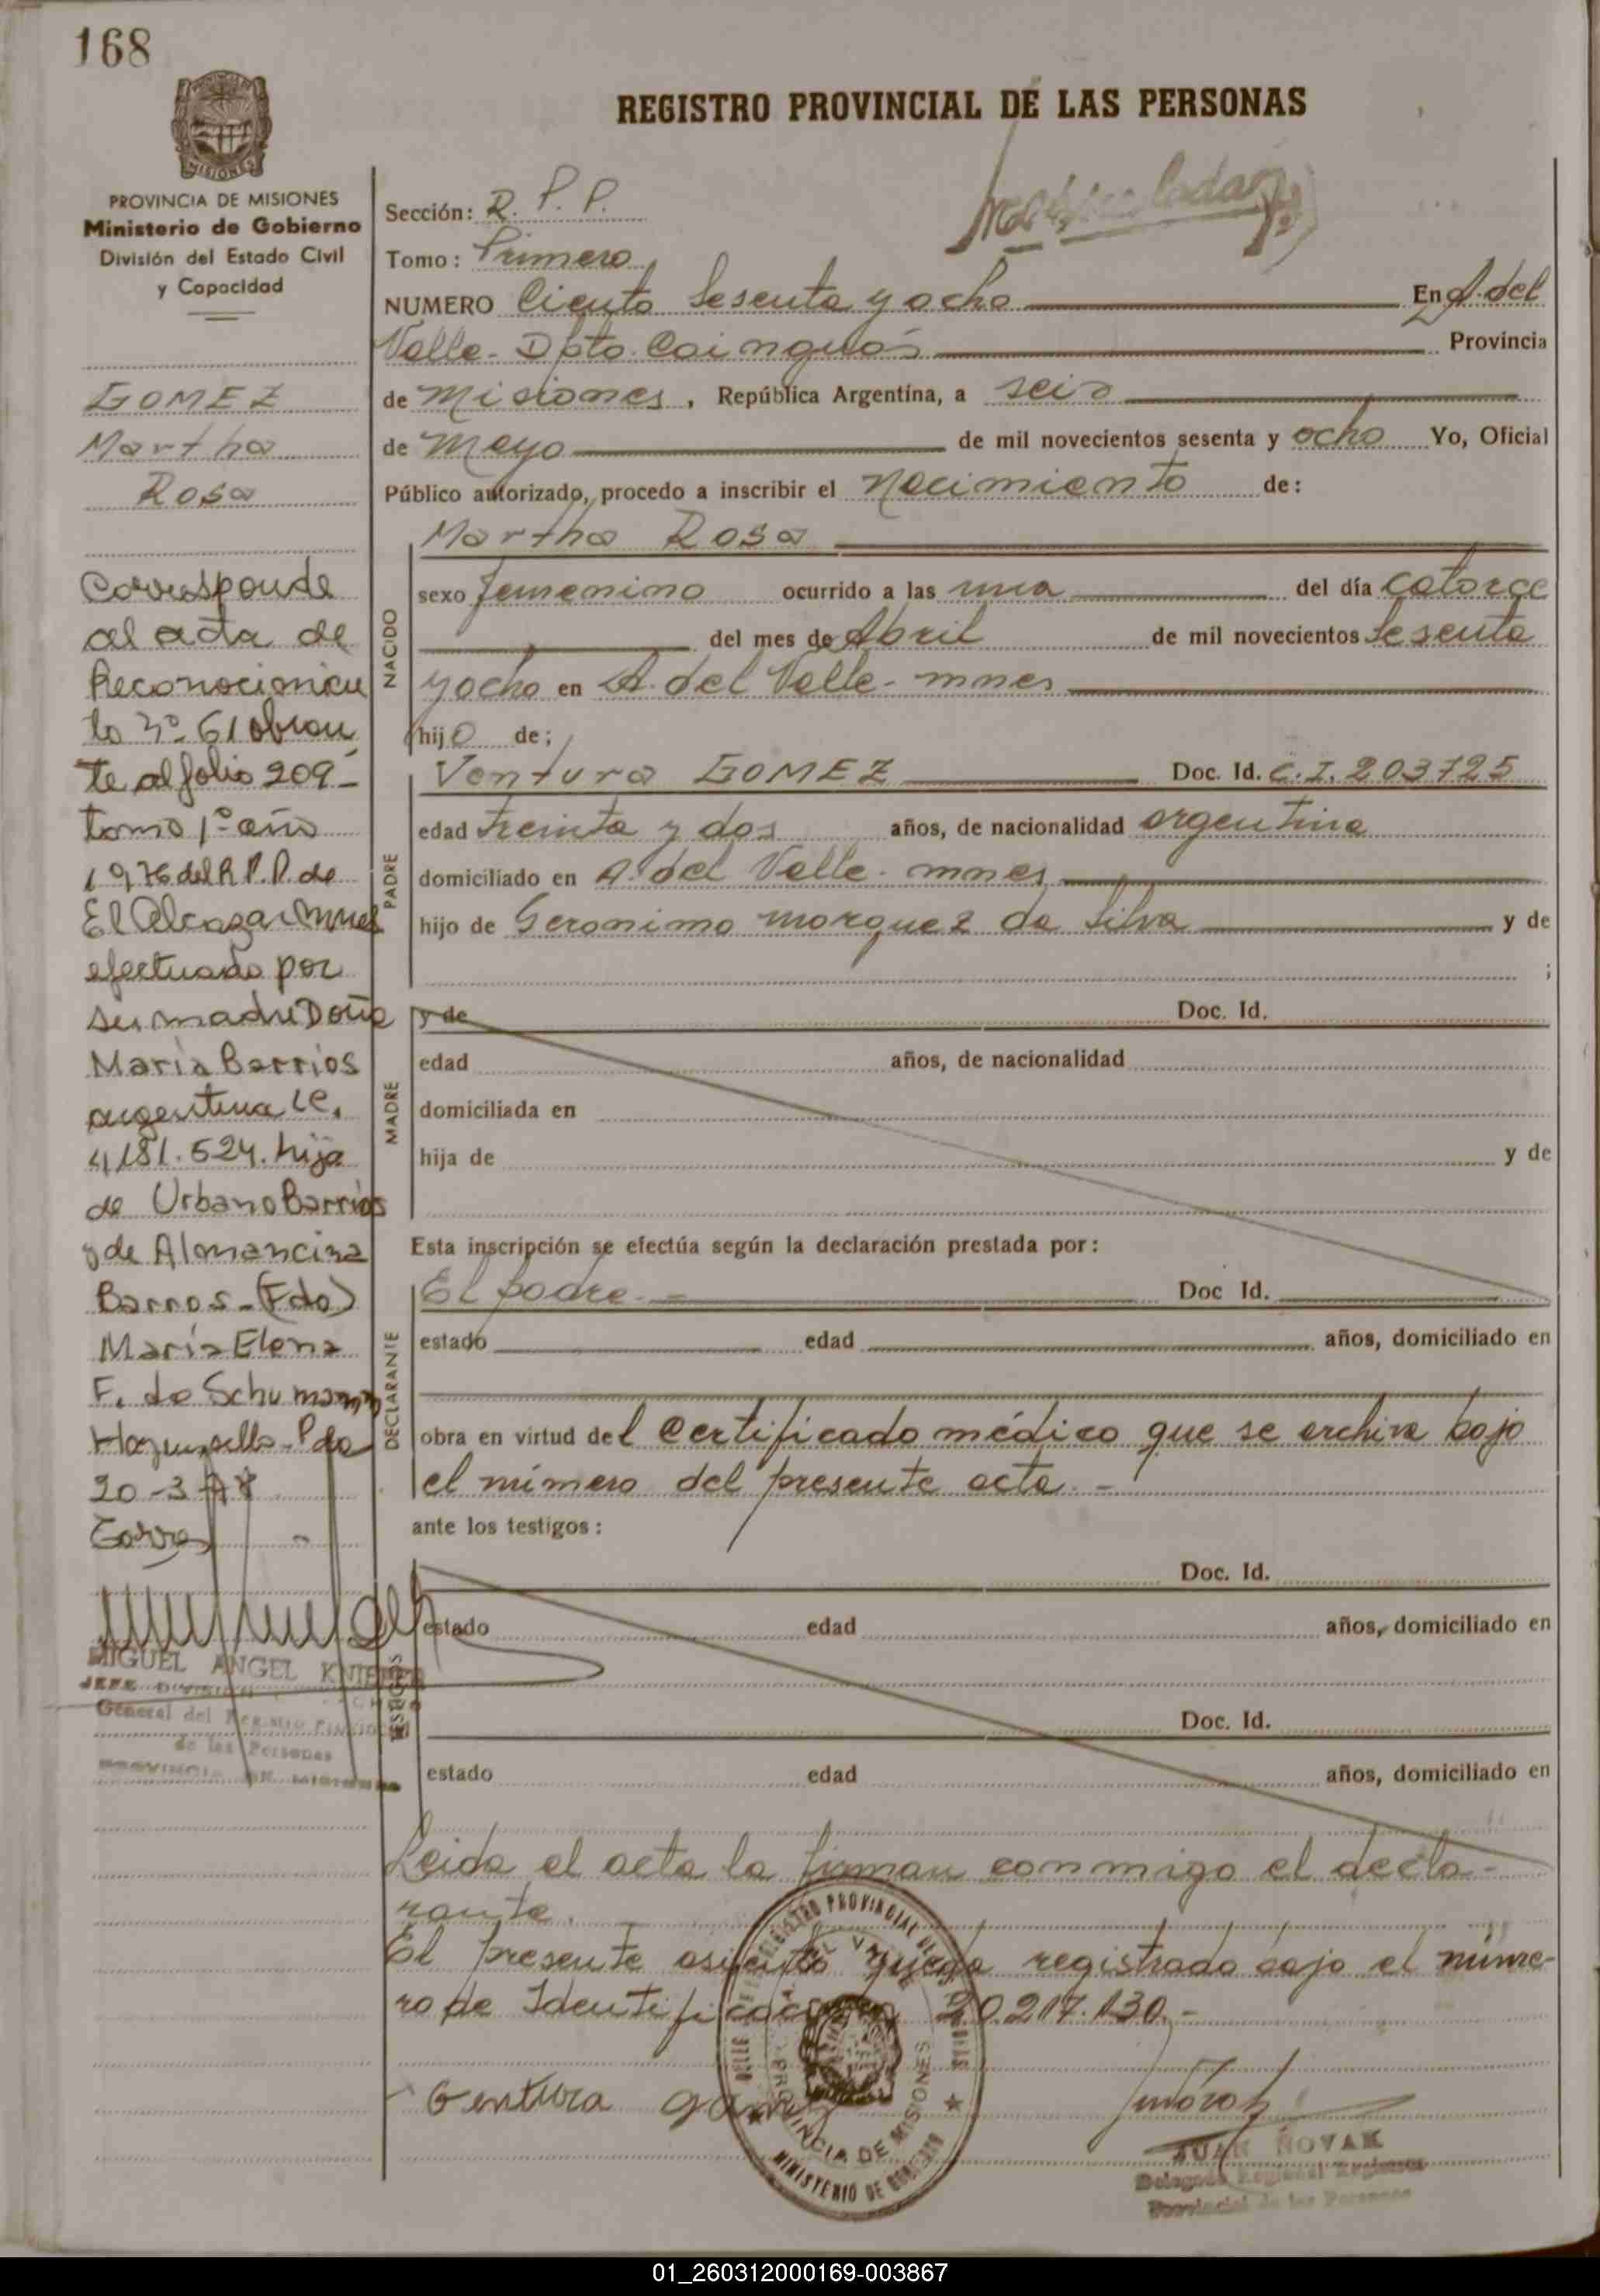 168
PROVINCIA DE MISIONES
Ministerio de Gobierno
División del Estado Civil
y Capacidad
GOMEZ
Martha
Rosa
Corresponde
al acta de
Reconocimien
to nº 61 obran
te al folio 209-
tomo 1º año
1976 del R.P.P. de
El Alcazar Mnes
efectuado por
su madre Doña
María Barrios
argentina LC.
4181.524. hija
de Urbano Barrios
y de Almancina
Barros-(Fdo)
María Elena
F. de Schumann
Hay un sello-Pda
20-3-78
Torres
MIGUEL ANGEL
JEFE DIVISION
General del Registro Provincial
de las Personas
PROVINCIA DE MISIONES
REGISTRO PROVINCIAL DE LAS PERSONAS
Sección: R. P. P.
Tomo: Primero
NUMERO Ciento Sesenta y ocho En A. del
Valle- Dpto. Cainguás Provincia
de Misiones, República Argentina, a seis
de Mayo de mil novecientos sesenta y ocho Yo, Oficial
Público autorizado, procedo a inscribir el Nacimiento de:
NACIDO
Martha Rosa
sexo femenino ocurrido a las una del día catorce
del mes de Abril de mil novecientos Sesenta
y ocho en A. del Valle- mnes
hijo de;
PADRE
Ventura GOMEZ Doc. Id. C.I. 203725
edad treinta y dos años, de nacionalidad argentina
domiciliado en A. del Valle- mnes
hijo de Geronimo Marquez da Silva y de
;
MADRE
y de Doc. Id.
edad años, de nacionalidad
domiciliada en
hija de y de
Esta inscripción se efectúa según la declaración prestada por:
DECLARANTE
El padre.- Doc Id.
estado edad años, domiciliado en
obra en virtud del Certificado médico que se archiva bajo
el número del presente acta.-
ante los testigos:
TESTIGOS
Doc. Id.
estado edad años, domiciliado en
Doc. Id.
estado edad años, domiciliado en
Leida el acta la firman conmigo el decla-
rante.
El presente asiento queda registrado bajo el núme-
ro de Identificación 20.217.130.-
Ventura Gomez
REGISTRO PROVINCIAL DE LAS
PROVINCIA DE MISIONES
MINISTERIO DE GOBIERNO
JUAN NOVAK
Delegado Regional Registro
Provincial de las Personas
01_260312000169-003867